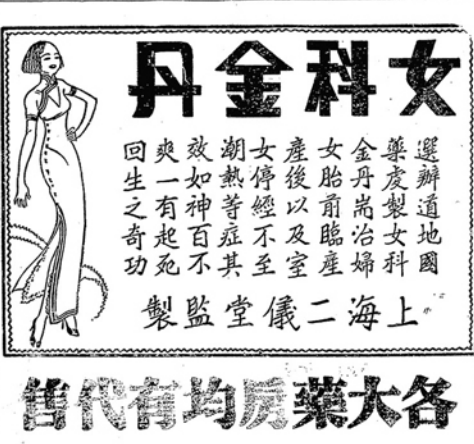 女科金丹
選辦道地國
藥虔製女科
金丹耑治婦
女胎前臨產
產後以及室
女停經不至
潮熱等症其
效如神百不
爽一有起死
回生之奇功
上海二儀堂監製
各大藥房均有代售